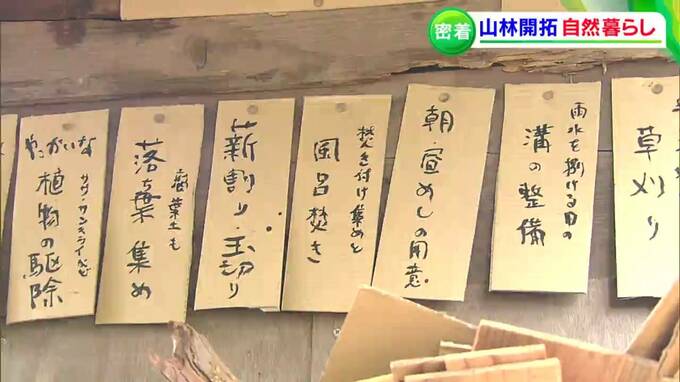 密着
山林開拓 自然暮らし
草刈り
雨水を捌ける用の
溝の整備
朝・昼めしの用意
焚き付け集めと
風呂焚き
薪割り・玉切り
腐葉土も
落ち葉集め
やっかいな
植物の駆除
ササ・サンキライなど